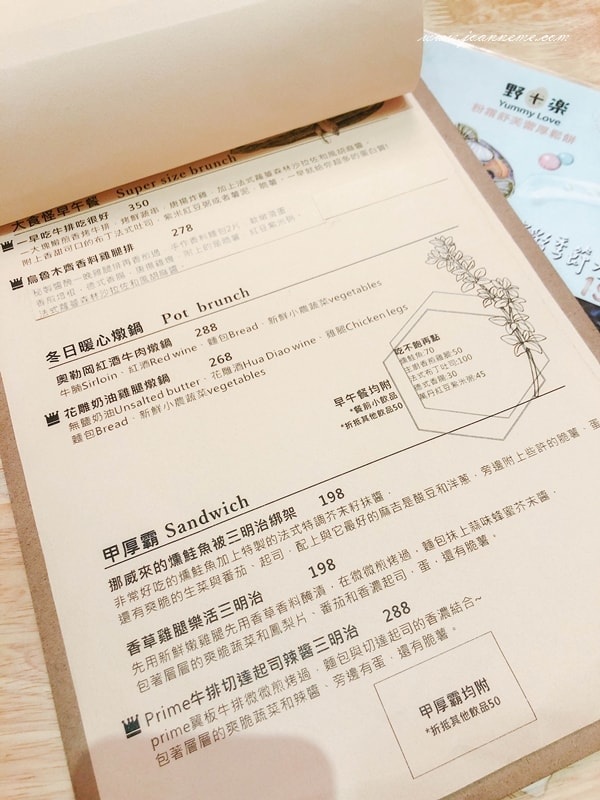 www.joannenme.com
野十樂
Yummy Love
大食怪早午餐 Super size brunch
一早吃牛排吃很好 350
烏魯木齊香料雞腿排 278
冬日暖心燉鍋 Pot brunch
奧勒岡紅酒牛肉燉鍋 288
牛腩Sirloin、紅酒Red wine、麵包Bread、新鮮小農蔬菜vegetables
花雕奶油雞腿燉鍋 268
無鹽奶油Unsalted butter、花雕酒Hua Diao wine、雞腿Chicken legs
麵包Bread、新鮮小農蔬菜vegetables
吃不飽再點
燻鮭魚70
法式布丁吐司:100
德式香腸30
早午餐均附
*餐前小飲品
*折抵其他飲品50
甲厚霸 Sandwich
挪威來的燻鮭魚被三明治綁架 198
非常好吃的燻鮭魚加上特製的法式特調芥末籽抹醬，
還有爽脆的生菜與番茄、起司，配上與它最好的麻吉是酸豆和洋蔥，旁邊附上些許的脆薯，蛋
香草雞腿樂活三明治 198
先用新鮮嫩雞腿先用香草香料醃漬，在微微煎烤過，麵包抹上蒜味蜂蜜芥末醬，
包著層層的爽脆蔬菜和鳳梨片、番茄和香濃起司，蛋，還有脆薯。
Prime牛排切達起司辣醬三明治 288
prime翼板牛排微微煎烤過，麵包與切達起司的香濃結合~
包著層層的爽脆蔬菜和辣醬、旁邊有蛋、還有脆薯。
甲厚霸均附
*折抵其他飲品50